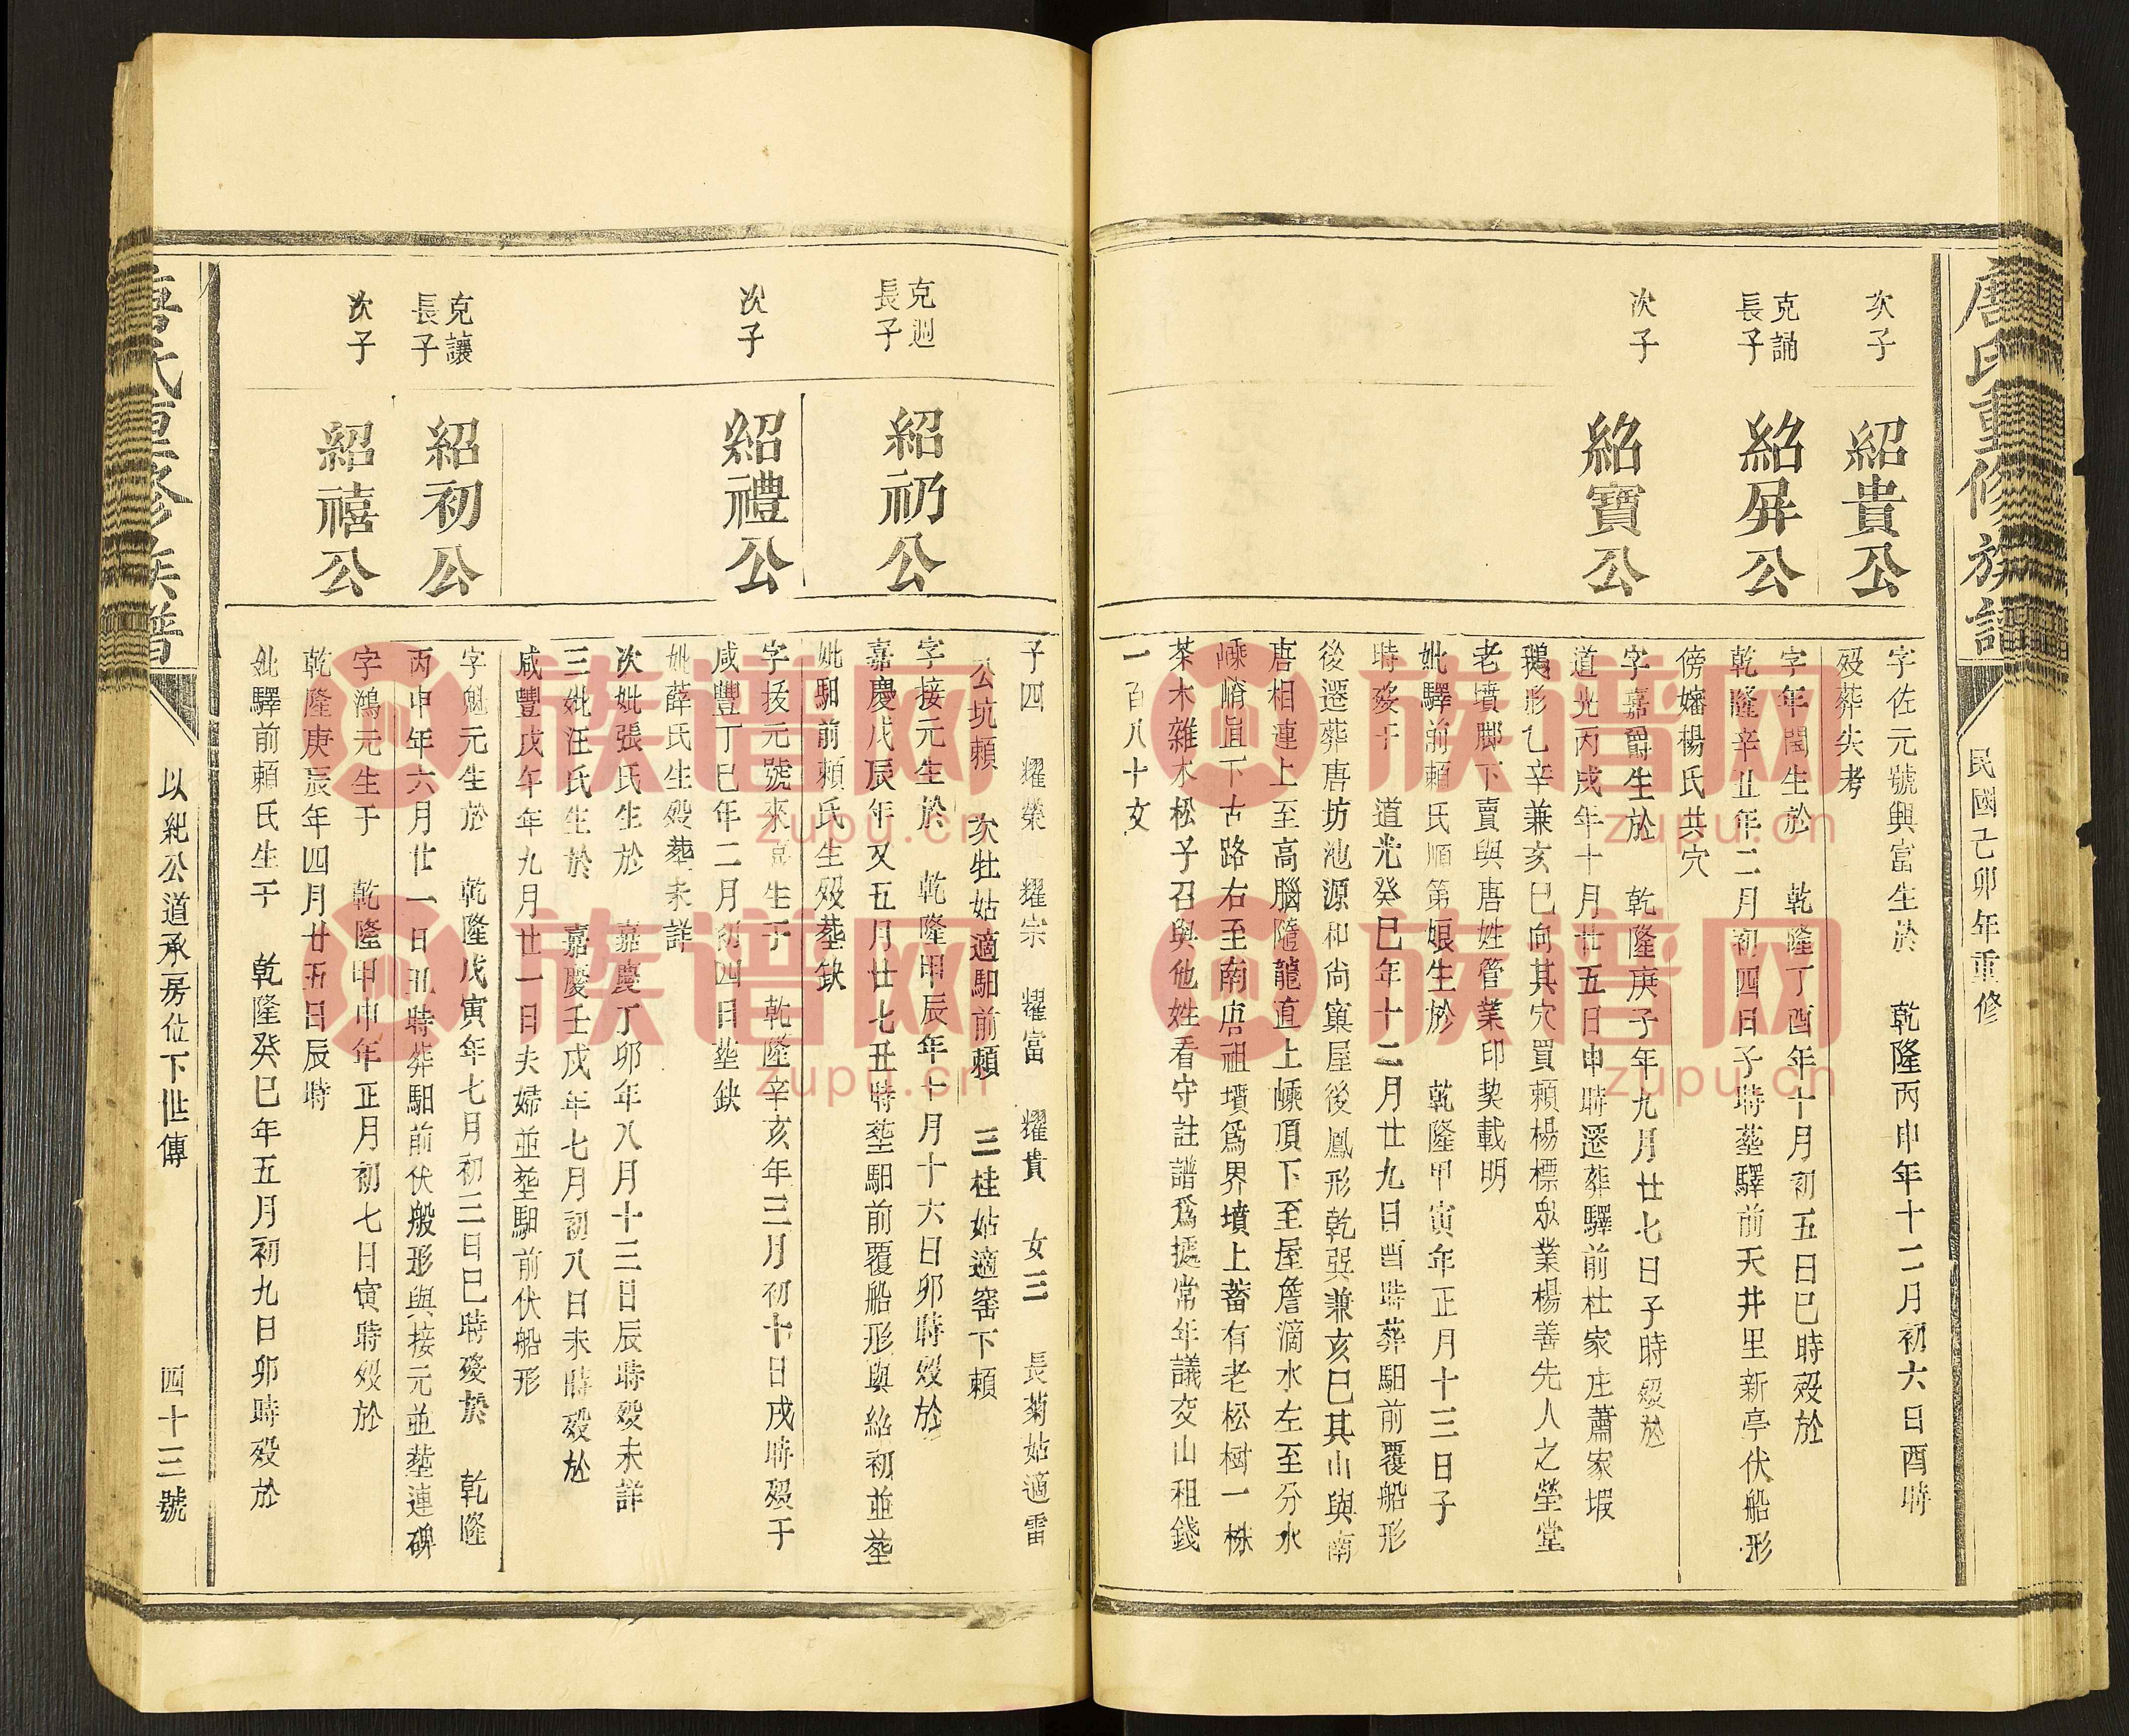 唐氏重修族譜
民國己卯年重修
次子
紹貴公
字佐元號興富生於 乾隆丙申年十二月初六日酉時
歿葬失考
克誦
長子
紹屏公
字年閏生於 乾隆丁酉年十月初五日巳時歿於
乾隆辛丑年二月初四日子時塟驛前天井里新亭伏船形
傍嬸楊氏共穴
次子
紹寶公
字嘉爵生於 乾隆庚子年九月廿七日子時歿於
道光丙戌年十月廿五日申時遷葬驛前杜家庄蕭家塅
鵝形乙辛兼亥巳向其穴買賴楊標眾業楊善先人之塋堂
老墳脚下賣與唐姓管業印契載明
妣驛前賴氏順第娘生於 乾隆甲寅年正月十三日子
時歿于 道光癸巳年十二月廿九日酉時葬馹前覆船形
後遷葬唐坊池源和尚窠屋後鳳形乾巽兼亥巳其山與南
唐相連上至高腦隨龍直上嵊頂下至屋詹滴水左至分水
嵊峭直下古路右至南唐祖墳爲界墳上蓄有老松樹一株
茶木雜木松子召與他姓看守註譜爲據常年議交山租錢
一百八十文
子四 耀榮 耀宗 耀富 耀貴 女三 長菊姑適雷
公坑賴 次牡姑適馹前賴 三桂姑適窰下賴
克迴
長子
紹礽公
字接元生於 乾隆甲辰年十月十六日卯時歿於
嘉慶戊辰年又五月廿七丑時塟馹前覆船形與紹初並塟
妣馹前賴氏生歿塟缺
次子
紹禮公
字拔元號來富生于 乾隆辛亥年三月初十日戌時歿于
咸豐丁巳年二月初四日塟缺
妣薛氏生歿葬未詳
次妣張氏生於 嘉慶丁卯年八月十三日辰時歿未詳
三妣汪氏生於 嘉慶壬戌年七月初八日未時歿於
咸豐戊午年九月廿一日夫婦並塟馹前伏船形
克讓
長子
紹初公
字魁元生於 乾隆戊寅年七月初三日巳時歿於 乾隆
丙申年六月廿一日丑時葬馹前伏般形與接元並塟連碑
次子
紹禧公
字鴻元生于 乾隆甲申年正月初七日寅時歿於
乾隆庚辰年四月廿五日辰時
妣驛前賴氏生于 乾隆癸巳年五月初九日卯時歿於
唐氏重修族譜
以紀公道承房位下世傳
四十三號
族谱网
zupu.cn
族谱网
zupu.cn
族谱网
zupu.cn
族谱网
zupu.cn